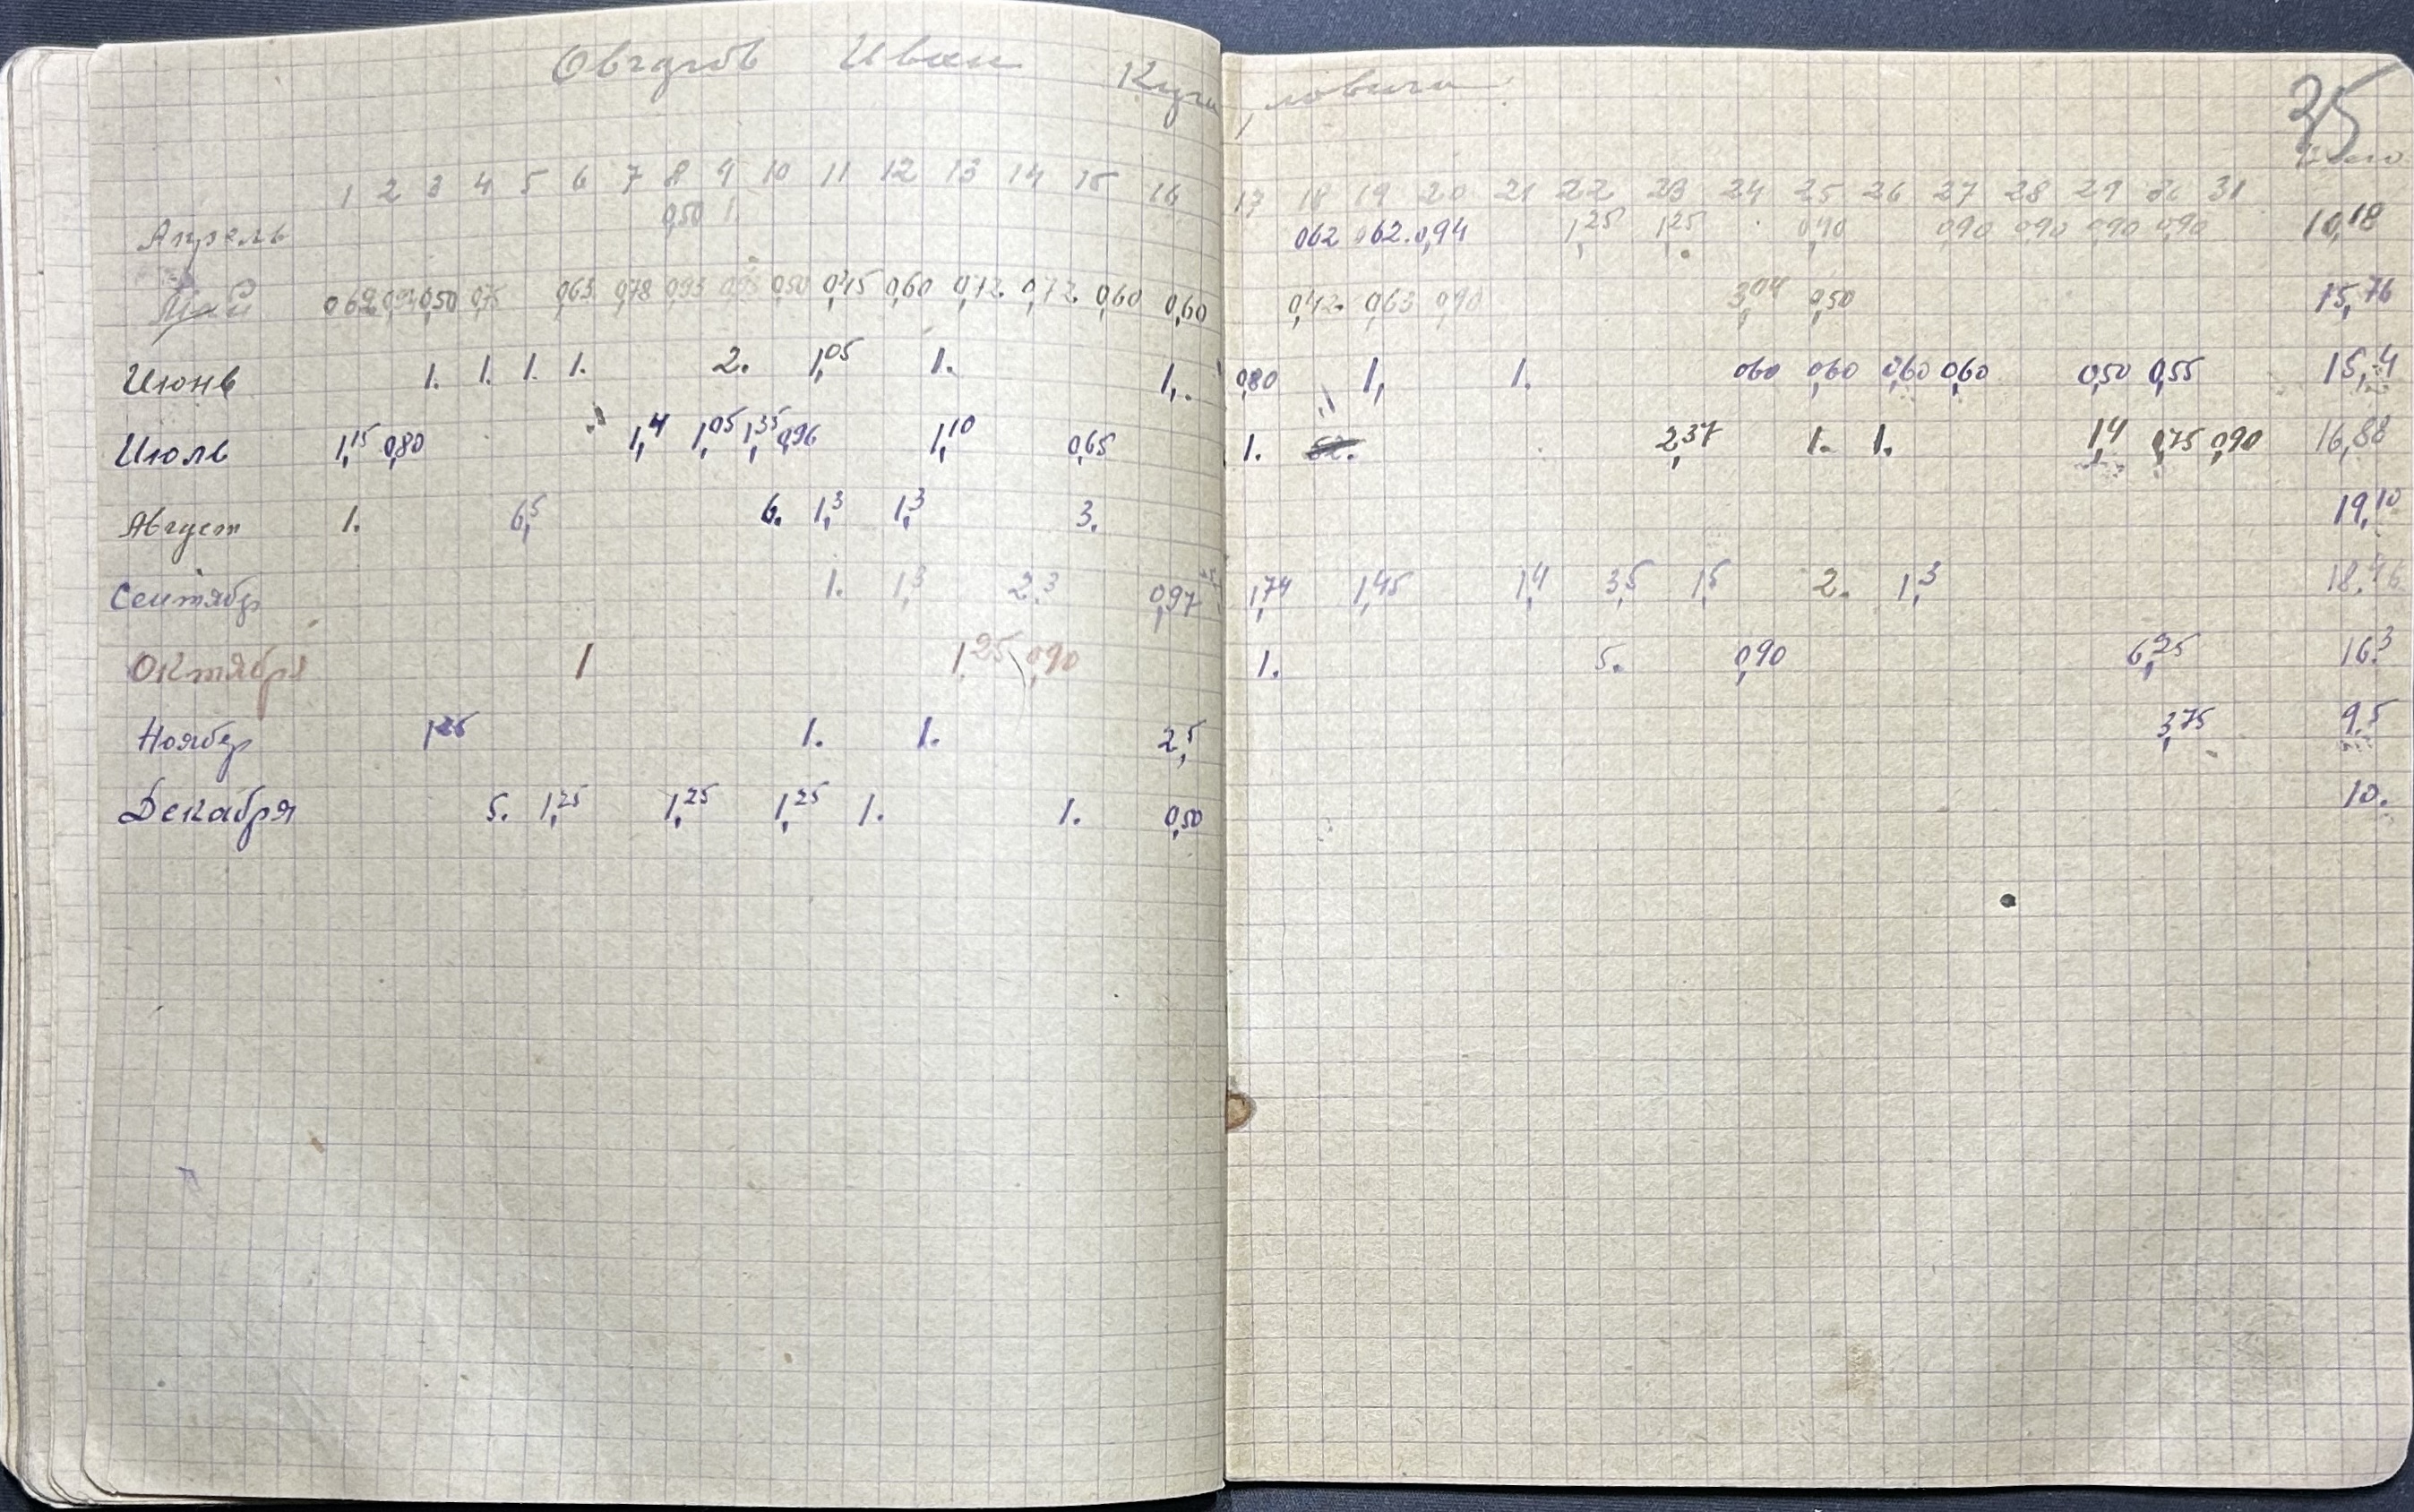 Иван
35
1 2 3 4 5 6 7 8 9 10 11 12 13 14 15 16 17 18 19 20 21 22 23 24 25 26 27 28 29 30 31
Апрель 0,50 1. 062 062. 0,94 1,25 1,25 0,90 0,90 0,90 0,90 10,18
Май 0,50 0,75 0,63 0,78 0,93 0,50 0,45 0,60 0,72. 0,72. 0,60 0,60 0,42. 0,63 0,90 3,04 0,50 15,76
Июнь 1. 1. 1. 1. 2. 1,05 1. 1,. 0,80 1, 1. 060 0,60 0,60 0,60 0,50 0,55 15,4
Июль 1,15 0,80 1,4 1,05 1,35 0,96 1,10 0,65 1. 2,37 1. 1. 1,4 0,75 0,90 16,88
Август 1. 6,5 6. 1,3 1,3 3. 19,10
Сентябр 1. 1,3 2.3 0,97 1,74 1,45 1,4 3,5 1,5 2. 1,3 18.46
Октября 1 1,25 0,90 1. 5. 0,90 6,25 16.3
Ноябр 1,25 1. 1. 2,5 3,75 9.5
Декабря 5. 1,25 1,25 1,25 1. 1. 0,50 10.